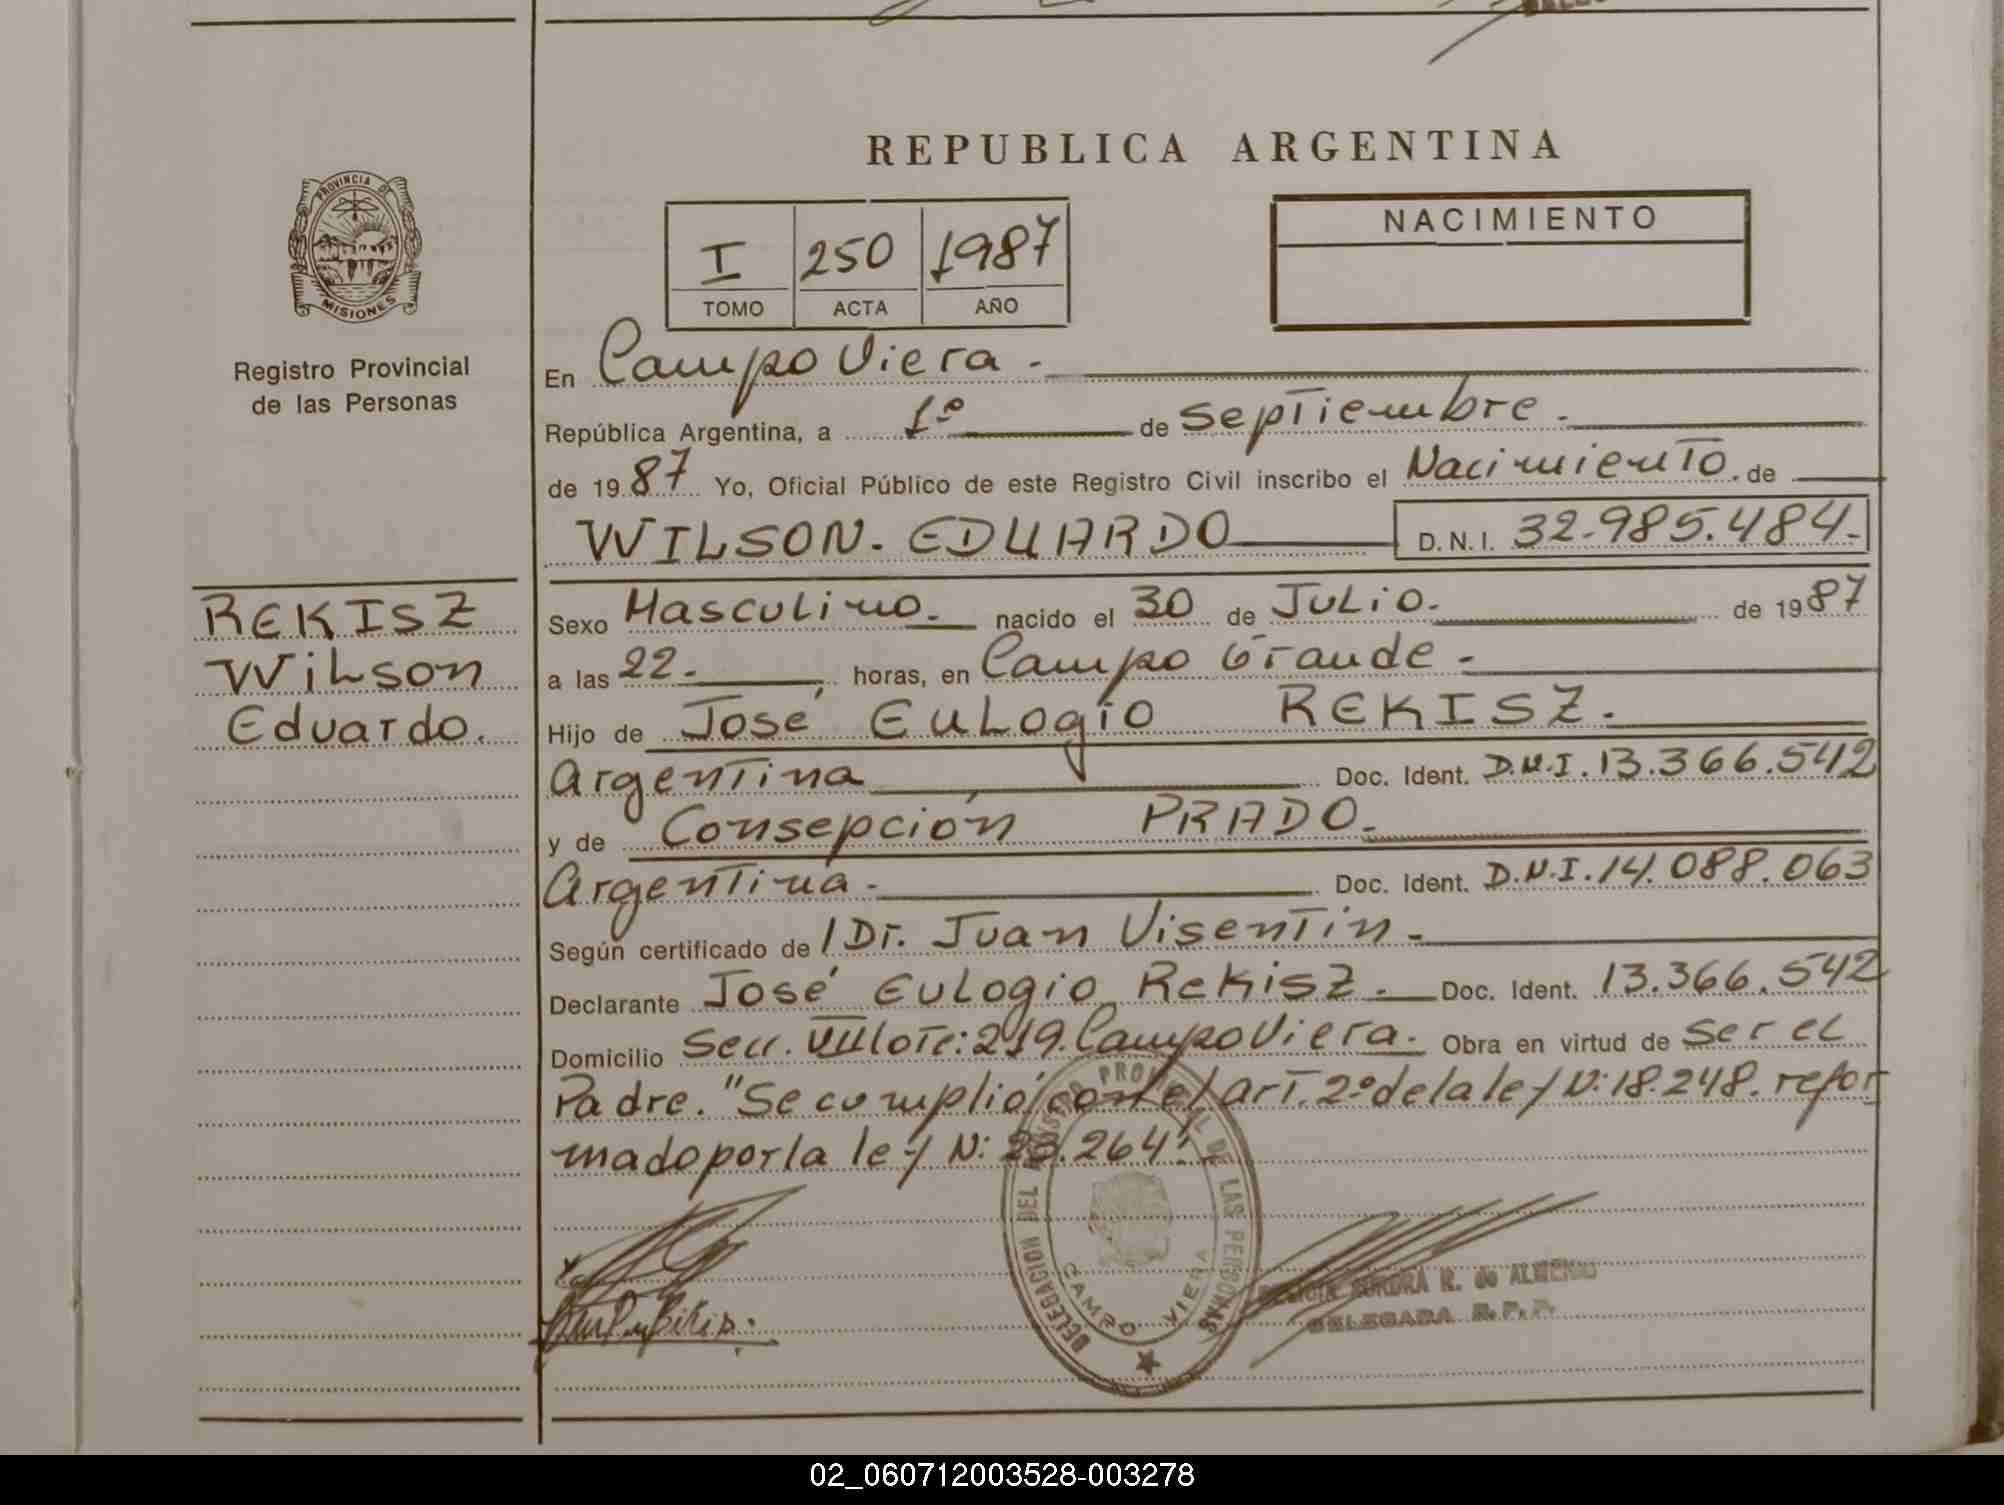 REPUBLICA ARGENTINA
PROVINCIA DE
MISIONES
Registro Provincial
de las Personas
I 250 1987
TOMO ACTA AÑO
NACIMIENTO
En Campo Viera.
República Argentina, a 1º de Septiembre.
de 1987 Yo, Oficial Público de este Registro Civil inscribo el Nacimiento. de
WILSON. EDUARDO D.N.I. 32.985.484.
REKISZ
Wilson
Eduardo.
Sexo Masculino. nacido el 30 de Julio. de 1987
a las 22. horas, en Campo Grande.
Hijo de José Eulogio REKISZ.
Argentina Doc. Ident. D.N.I. 13.366.542
y de Consepción PRADO.
Argentina. Doc. Ident. D.N.I. 14.088.063
Según certificado de / Dr. Juan Visentin.
Declarante José Eulogio Rekisz. Doc. Ident. 13.366.542
Domicilio Secc. VIII lote: 219. Campo Viera. Obra en virtud de ser el
Padre. "Se cumplió con el art. 2º de la ley N: 18.248. refor
mado por la ley N: 23.264".
DELEGACION DEL REGISTRO PROVINCIAL DE LAS PERSONAS
CAMPO VIERA
R. de ALMEIDA
DELEGADA R.P.P.
02_060712003528-003278